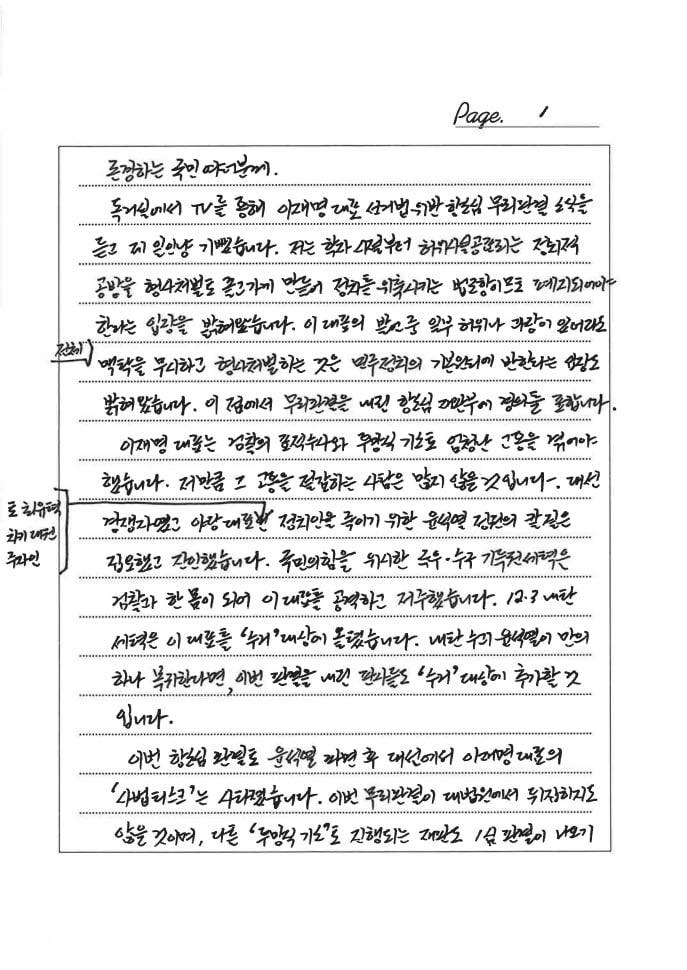 Page. 1
존경하는 국민 여러분께.
독거실에서 TV를 통해 이재명 대표 선거법 위반 항소심 무죄판결 소식을
듣고 제 일인양 기뻤습니다. 저는 학자 시절부터 허위사실공표라는 정치적
공방을 형사처벌로 끌고가게 만들어 정치를 위축시키는 법조항이므로 폐지되어야
한다는 입장을 밝혀왔습니다. 이 대표의 발언 중 일부 허위나 과장이 있더라도
전체
맥락을 무시하고 형사처벌하는 것은 민주정치의 기본원리에 반한다는 입장도
밝혀왔습니다. 이 점에서 무죄판결을 내린 항소심 재판부에 경의를 표합니다.
이재명 대표는 검찰의 표적수사와 투망식 기소로 엄청난 고통을 겪어야
했습니다. 저만큼 그 고통을 절감하는 사람은 많지 않을 것입니다. 대선
로 가장 유력
차기 대선
주자인
경쟁자였고 야당 대표인 정치인을 죽이기 위한 윤석열 정권의 칼질은
집요했고 잔인했습니다. 국민의힘을 위시한 극우·수구 기득권세력은
검찰과 한 몸이 되어 이 대표를 공격하고 저주했습니다. 12.3 내란
세력은 이 대표를 '수거' 대상에 올렸습니다. 내란 수괴 윤석열이 만의
하나 복귀한다면, 이번 판결을 내린 판사들도 '수거' 대상에 추가할 것
입니다.
이번 항소심 판결로 윤석열 파면 후 대선에서 이재명 대표의
'사법리스크'는 사라졌습니다. 이번 무죄판결이 대법원에서 뒤집히지도
않을 것이며, 다른 '투망식 기소'로 진행되는 재판도 1심 판결이 나오기